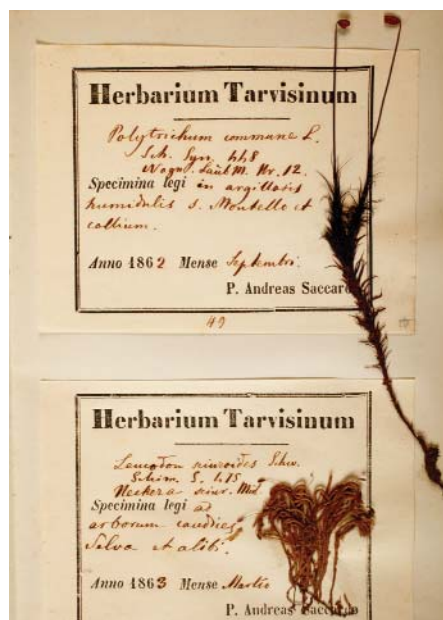 Herbarium Tarvisinum
Polytrichum commune L.
Sch. Syn. 448
Laub M. Nr. 12.
Specimina legi in argillosis
humidulis s. Montello et
collium.
Anno 1862 Mense Septembri.
P. Andreas Saccardo
49
Herbarium Tarvisinum
Leucodon sciuroides Schw.
Schim. S. 475
Neckera sciur. Mül.
Specimina legi ad
arborum caudices
Selva et alibi.
Anno 1863 Mense Martio
P. Andreas Saccardo